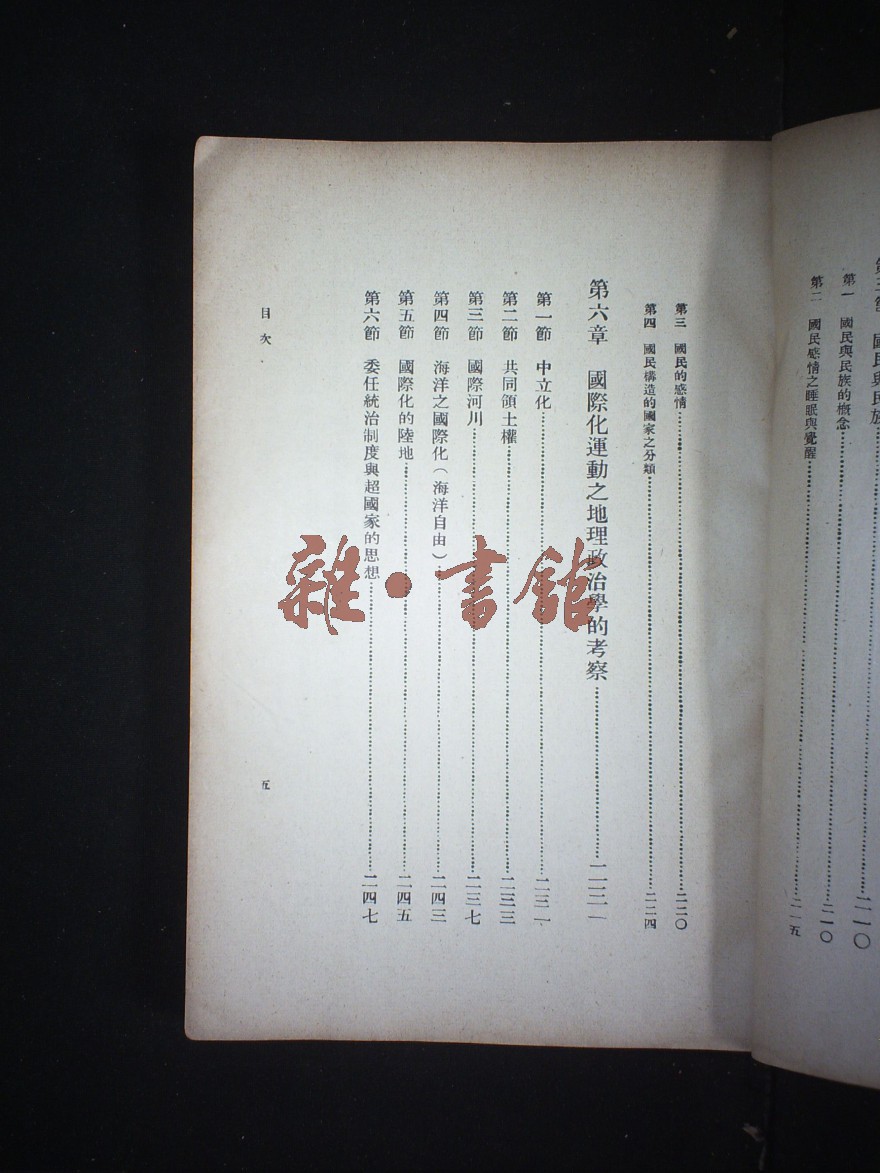 國民與民族
第一　國民與民族的概念……二一〇
第二　國民感情之睡眠與覺醒……二一五
第三　國民的感情……二二〇
第四　國民構造的國家之分類……二二四
第六章　國際化運動之地理政治學的考察……二三一
第一節　中立化……二三一
第二節　共同領土權……二三三
第三節　國際河川……二三七
第四節　海洋之國際化（海洋自由）……二四三
第五節　國際化的陸地……二四五
第六節　委任統治制度與超國家的思想……二四七
目次
五
雜·書館